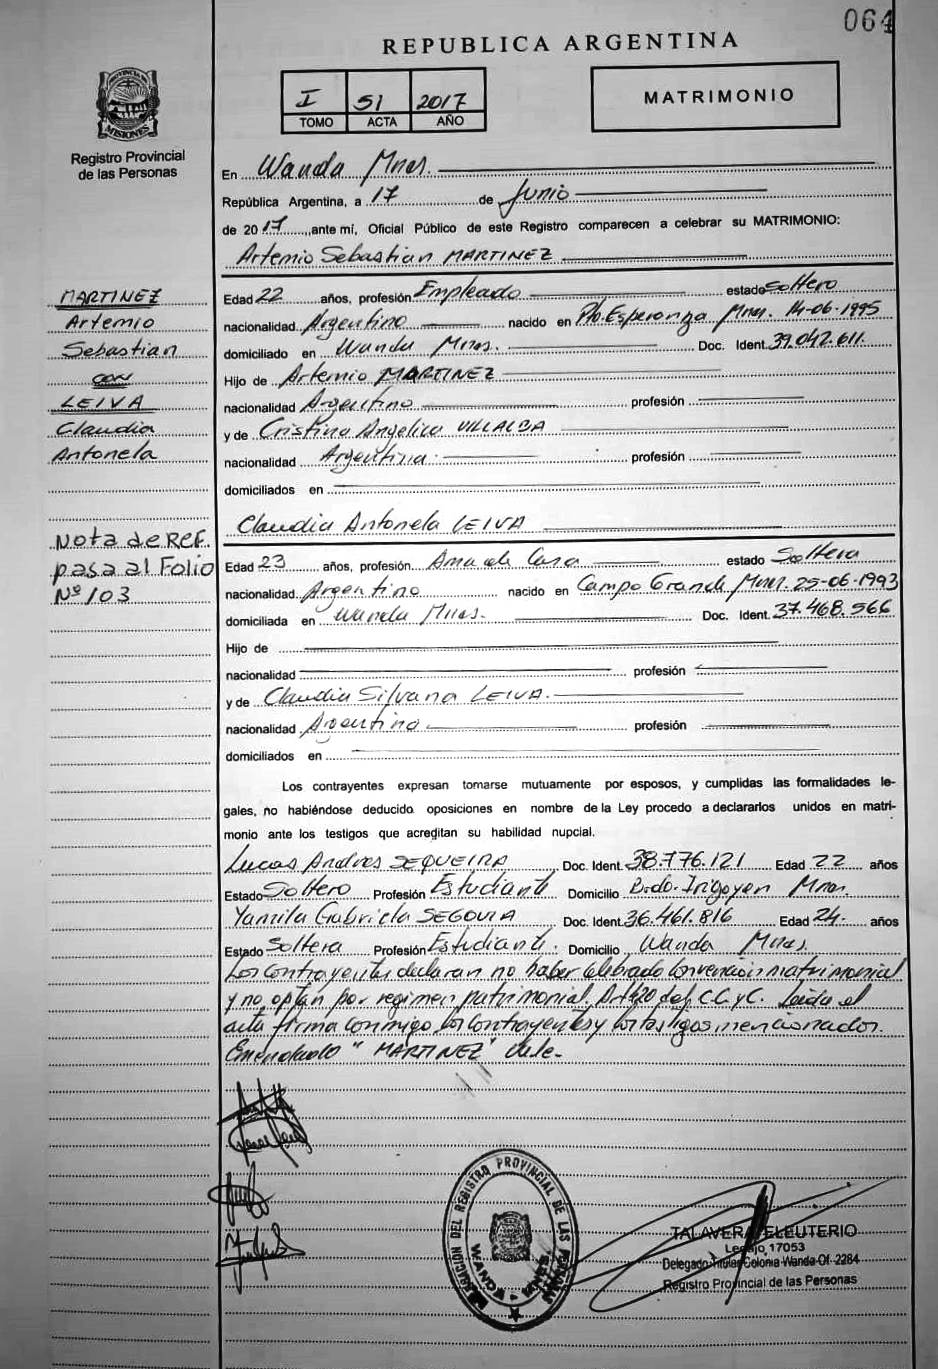 064
REPUBLICA ARGENTINA
I 51 2017
TOMO ACTA AÑO
MATRIMONIO
PROVINCIA DE MISIONES
Registro Provincial
de las Personas
En Wanda Mnes.
República Argentina, a 17 de Junio
de 2017, ante mí, Oficial Público de este Registro comparecen a celebrar su MATRIMONIO:
Artemio Sebastian MARTINEZ
MARTINEZ
Artemio
Sebastian
con
LEIVA
Claudia
Antonela
Nota de Ref.
pasa al Folio
Nº 103
Edad 22 años, profesión Empleado estado Soltero
nacionalidad Argentino nacido en Pto. Esperanza Mnes. 14-06-1995
domiciliado en Wanda Mnes. Doc. Ident. 39.042.611.
Hijo de Artemio MARTINEZ
nacionalidad Argentino profesión
y de Cristina Angelica VILLALBA
nacionalidad Argentina. profesión
domiciliados en
Claudia Antonela LEIVA
Edad 23 años, profesión Ama de Casa estado Soltera
nacionalidad Argentina nacido en Campo Grande Mnes. 25-06-1993
domiciliada en Wanda Mnes. Doc. Ident. 37.468.566
Hijo de
nacionalidad profesión
y de Claudia Silvana LEIVA.
nacionalidad Argentina profesión
domiciliados en
Los contrayentes expresan tomarse mutuamente por esposos, y cumplidas las formalidades le-
gales, no habiéndose deducido oposiciones en nombre de la Ley procedo a declararlos unidos en matri-
monio ante los testigos que acreditan su habilidad nupcial.
Lucas Andres SEQUEIRA Doc. Ident. 38.776.121 Edad 22 años
Estado Soltero Profesión Estudiante Domicilio B.do. Irigoyen Mnes.
Yamila Gabriela SEGOVIA Doc. Ident. 36.461.816 Edad 24. años
Estado Soltera Profesión Estudiante. Domicilio Wanda Mnes.
Los contrayentes declaran no haber celebrado convención matrimonial
y no optan por regimen patrimonial, Art 420 del C.C. y C. Leida el
acta firma conmigo los contrayentes y los testigos mencionados.
Enmendado "MARTINEZ" Vale.
DELEGACION DEL REGISTRO PROVINCIAL DE LAS PERSONAS
WANDA - MNES.
TALAVERA ELEUTERIO
Legajo, 17053
Delegado Titular Colonia Wanda Of. 2284
Registro Provincial de las Personas